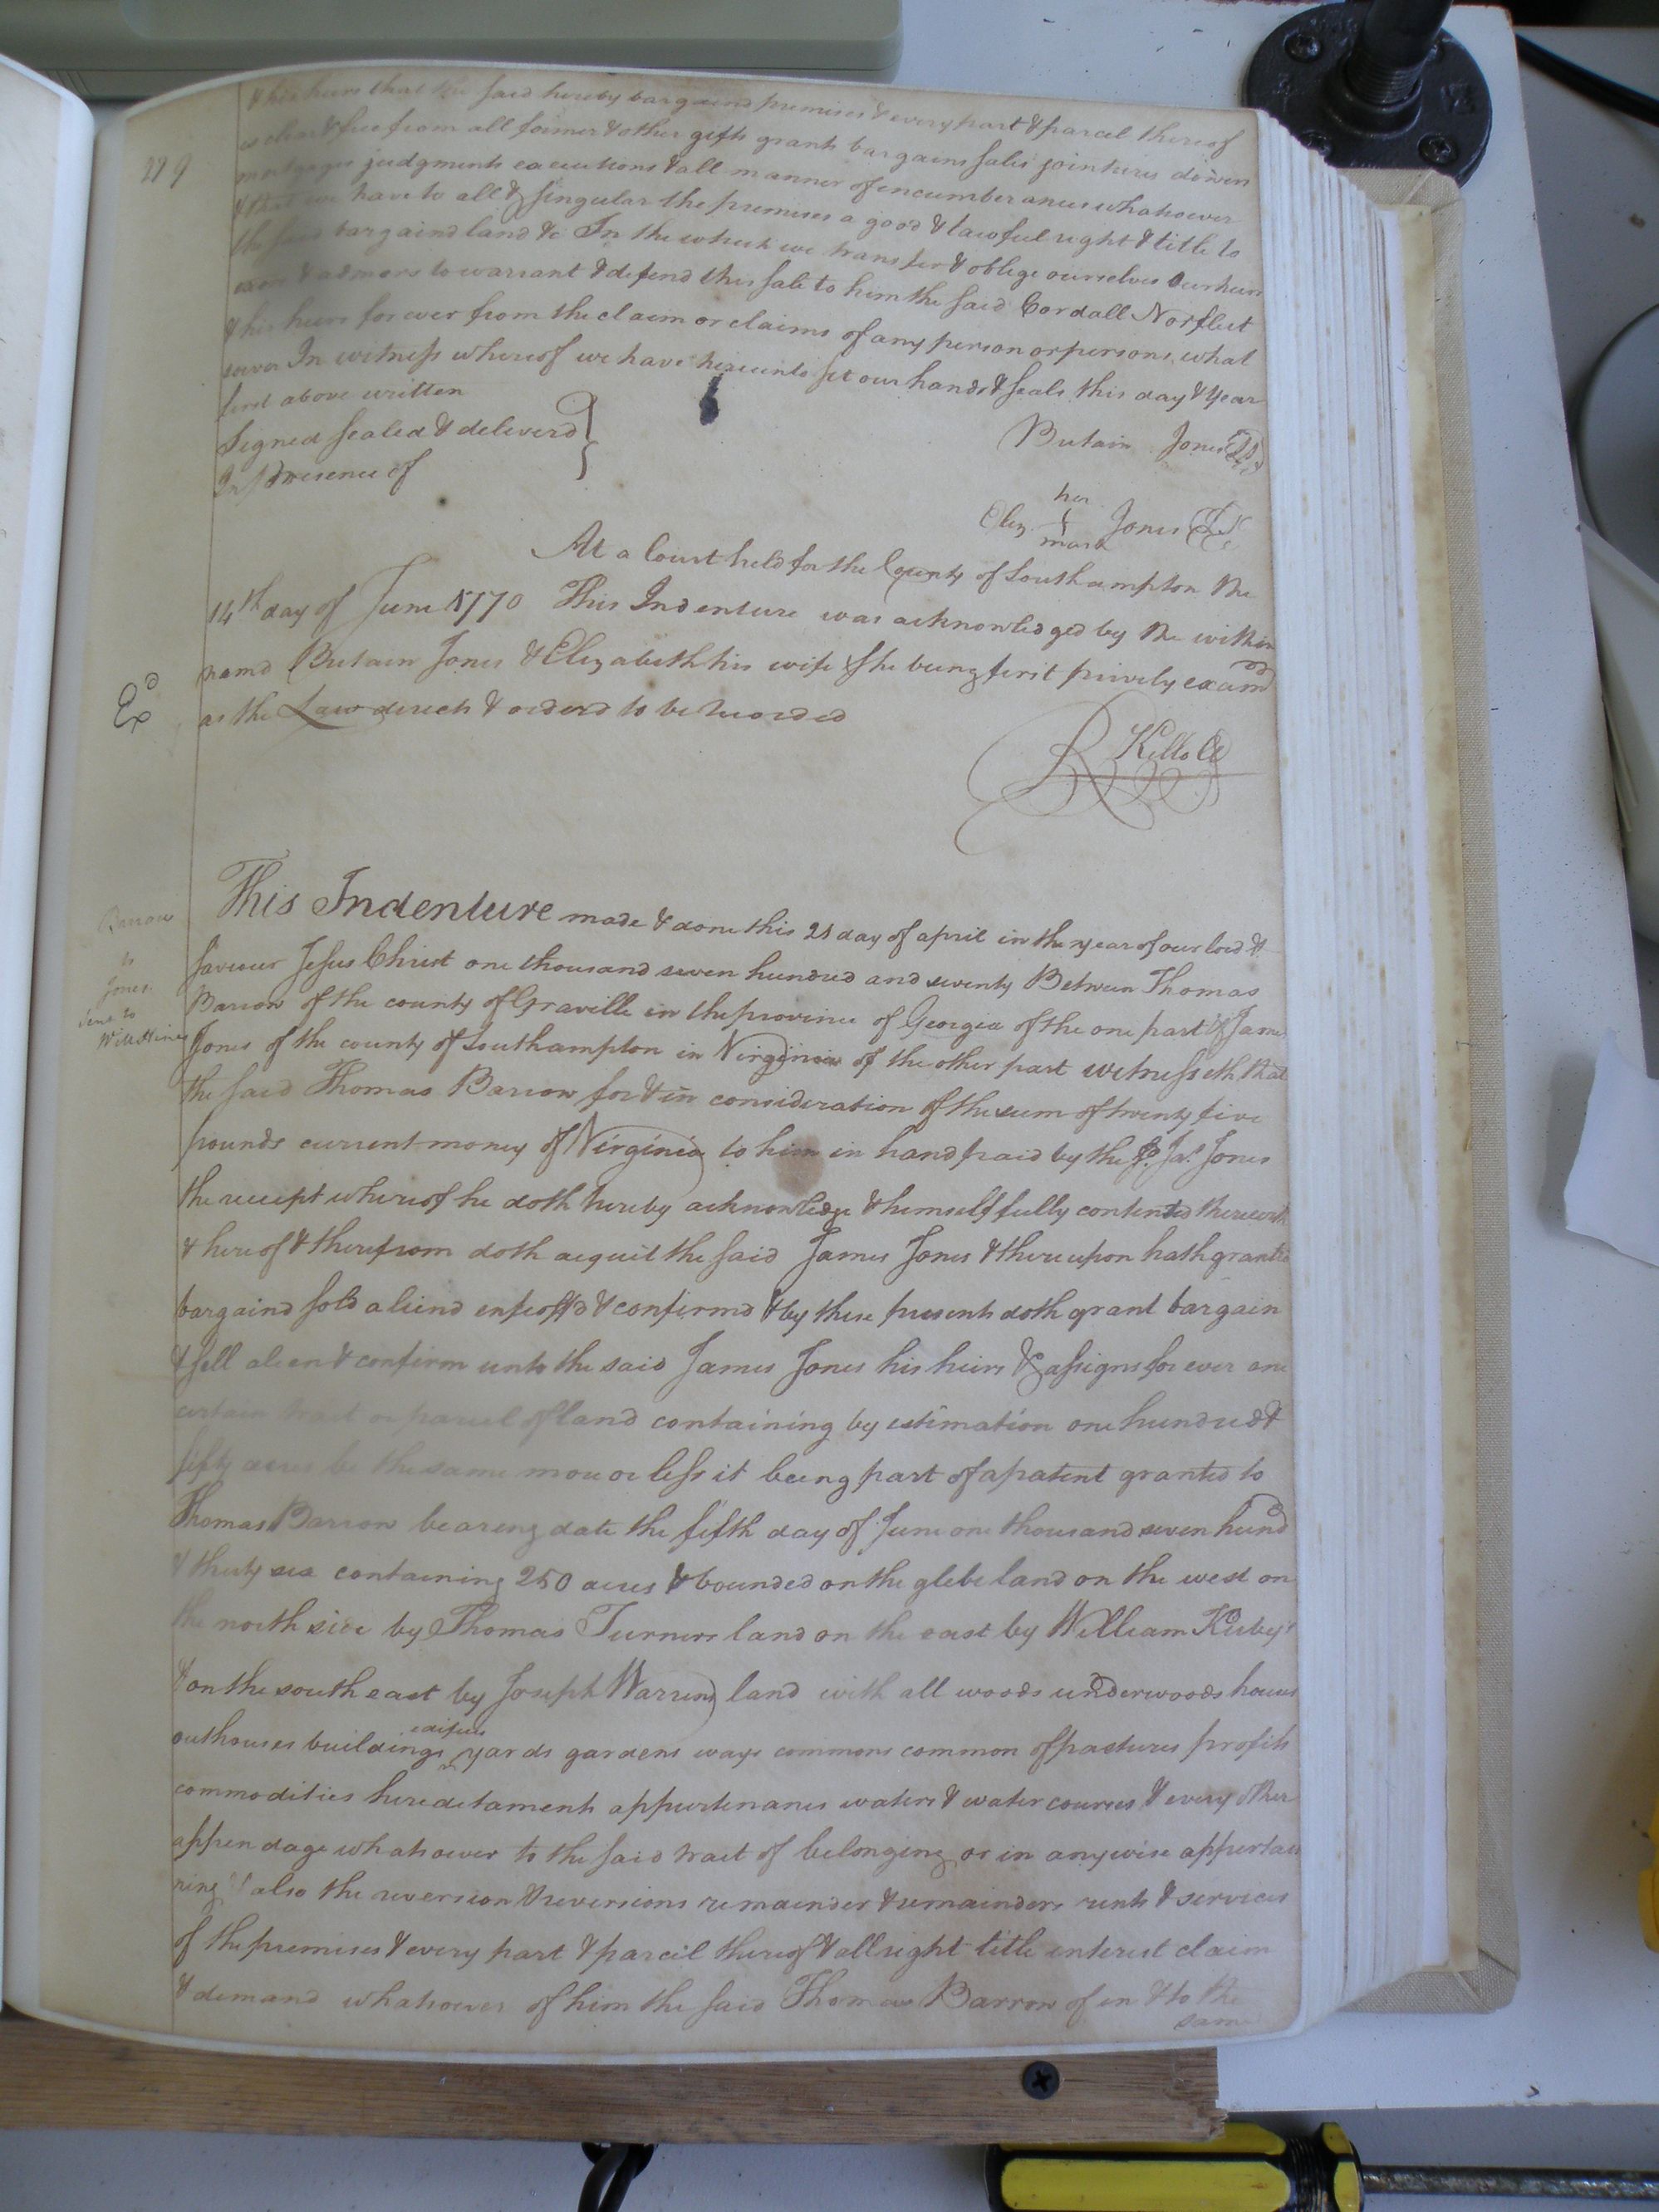 279
& his heirs that the said hereby bargaind premises & every part & parcel thereof
is clear & free from all former & other gifts grants bargains sales jointures dowers
mortgages judgments executions & all manner of encumberances whatsoever
& that we have to all & singular the premises a good & lawful right & title to
the said bargaind land &c In the which we transfer & oblige ourselves our heirs
exors & admors to warrant & defend this sale to him the said Cordall Norfleet
& his heirs for ever from the claim or claims of any person or persons what
soever In witness whereof we have hereunto set our hands & seals this day & year
first above written
Signed sealed & deliverd
In presence of
Britain Jones
her
Eliz Jones
mark
At a Court held for the County of Southampton the
14th day of June 1770 This Indenture was acknowledged by the within
named Britain Jones & Elizabeth his wife she being first privily examd
Exd
as the Law directs & orderd to be recorded
R Kello Cl
Barrow
to
Jones
This Indenture made & done this 21 day of april in the year of our lord &
saviour Jesus Christ one thousand seven hundred and seventy Between Thomas
Barrow of the county of Graville in the province of Georgia of the one part & James
Jones of the county of Southampton in Virginia of the other part witnesseth that
the said Thomas Barrow for & in consideration of the sum of twenty five
pounds current money of Virginia to him in hand paid by the sd. Jas. Jones
the receipt whereof he doth hereby acknowledge & himself fully contented therewith
& hereof & therefrom doth acquit the said James Jones & thereupon hath granted
bargaind sold aliend enfeoffd & confirmd & by these presents doth grant bargain
& sell alien & confirm unto the said James Jones his heirs & assigns for ever one
certain tract or parcel of land containing by estimation one hundred &
fifty acres be the same more or less it being part of a patent granted to
Thomas Barrow bearing date the fifth day of June one thousand seven hund
& thirty six containing 250 acres & bounded on the glebe land on the west on
the north side by Thomas Turners land on the east by William Kirby's
& on the south east by Joseph Warrens land with all woods underwoods houses
edifices
outhouses buildings yards gardens ways commons common of pastures profits
commodities hereditaments appurtenances waters & water courses & every other
appendage whatsoever to the said tract of belonging or in anywise appertai
ning & also the reversion & reversions remainder & remainders rents & services
of the premises & every part & parcel thereof & all right title interest claim
& demand whatsoever of him the said Thomas Barrow of in & to the
same